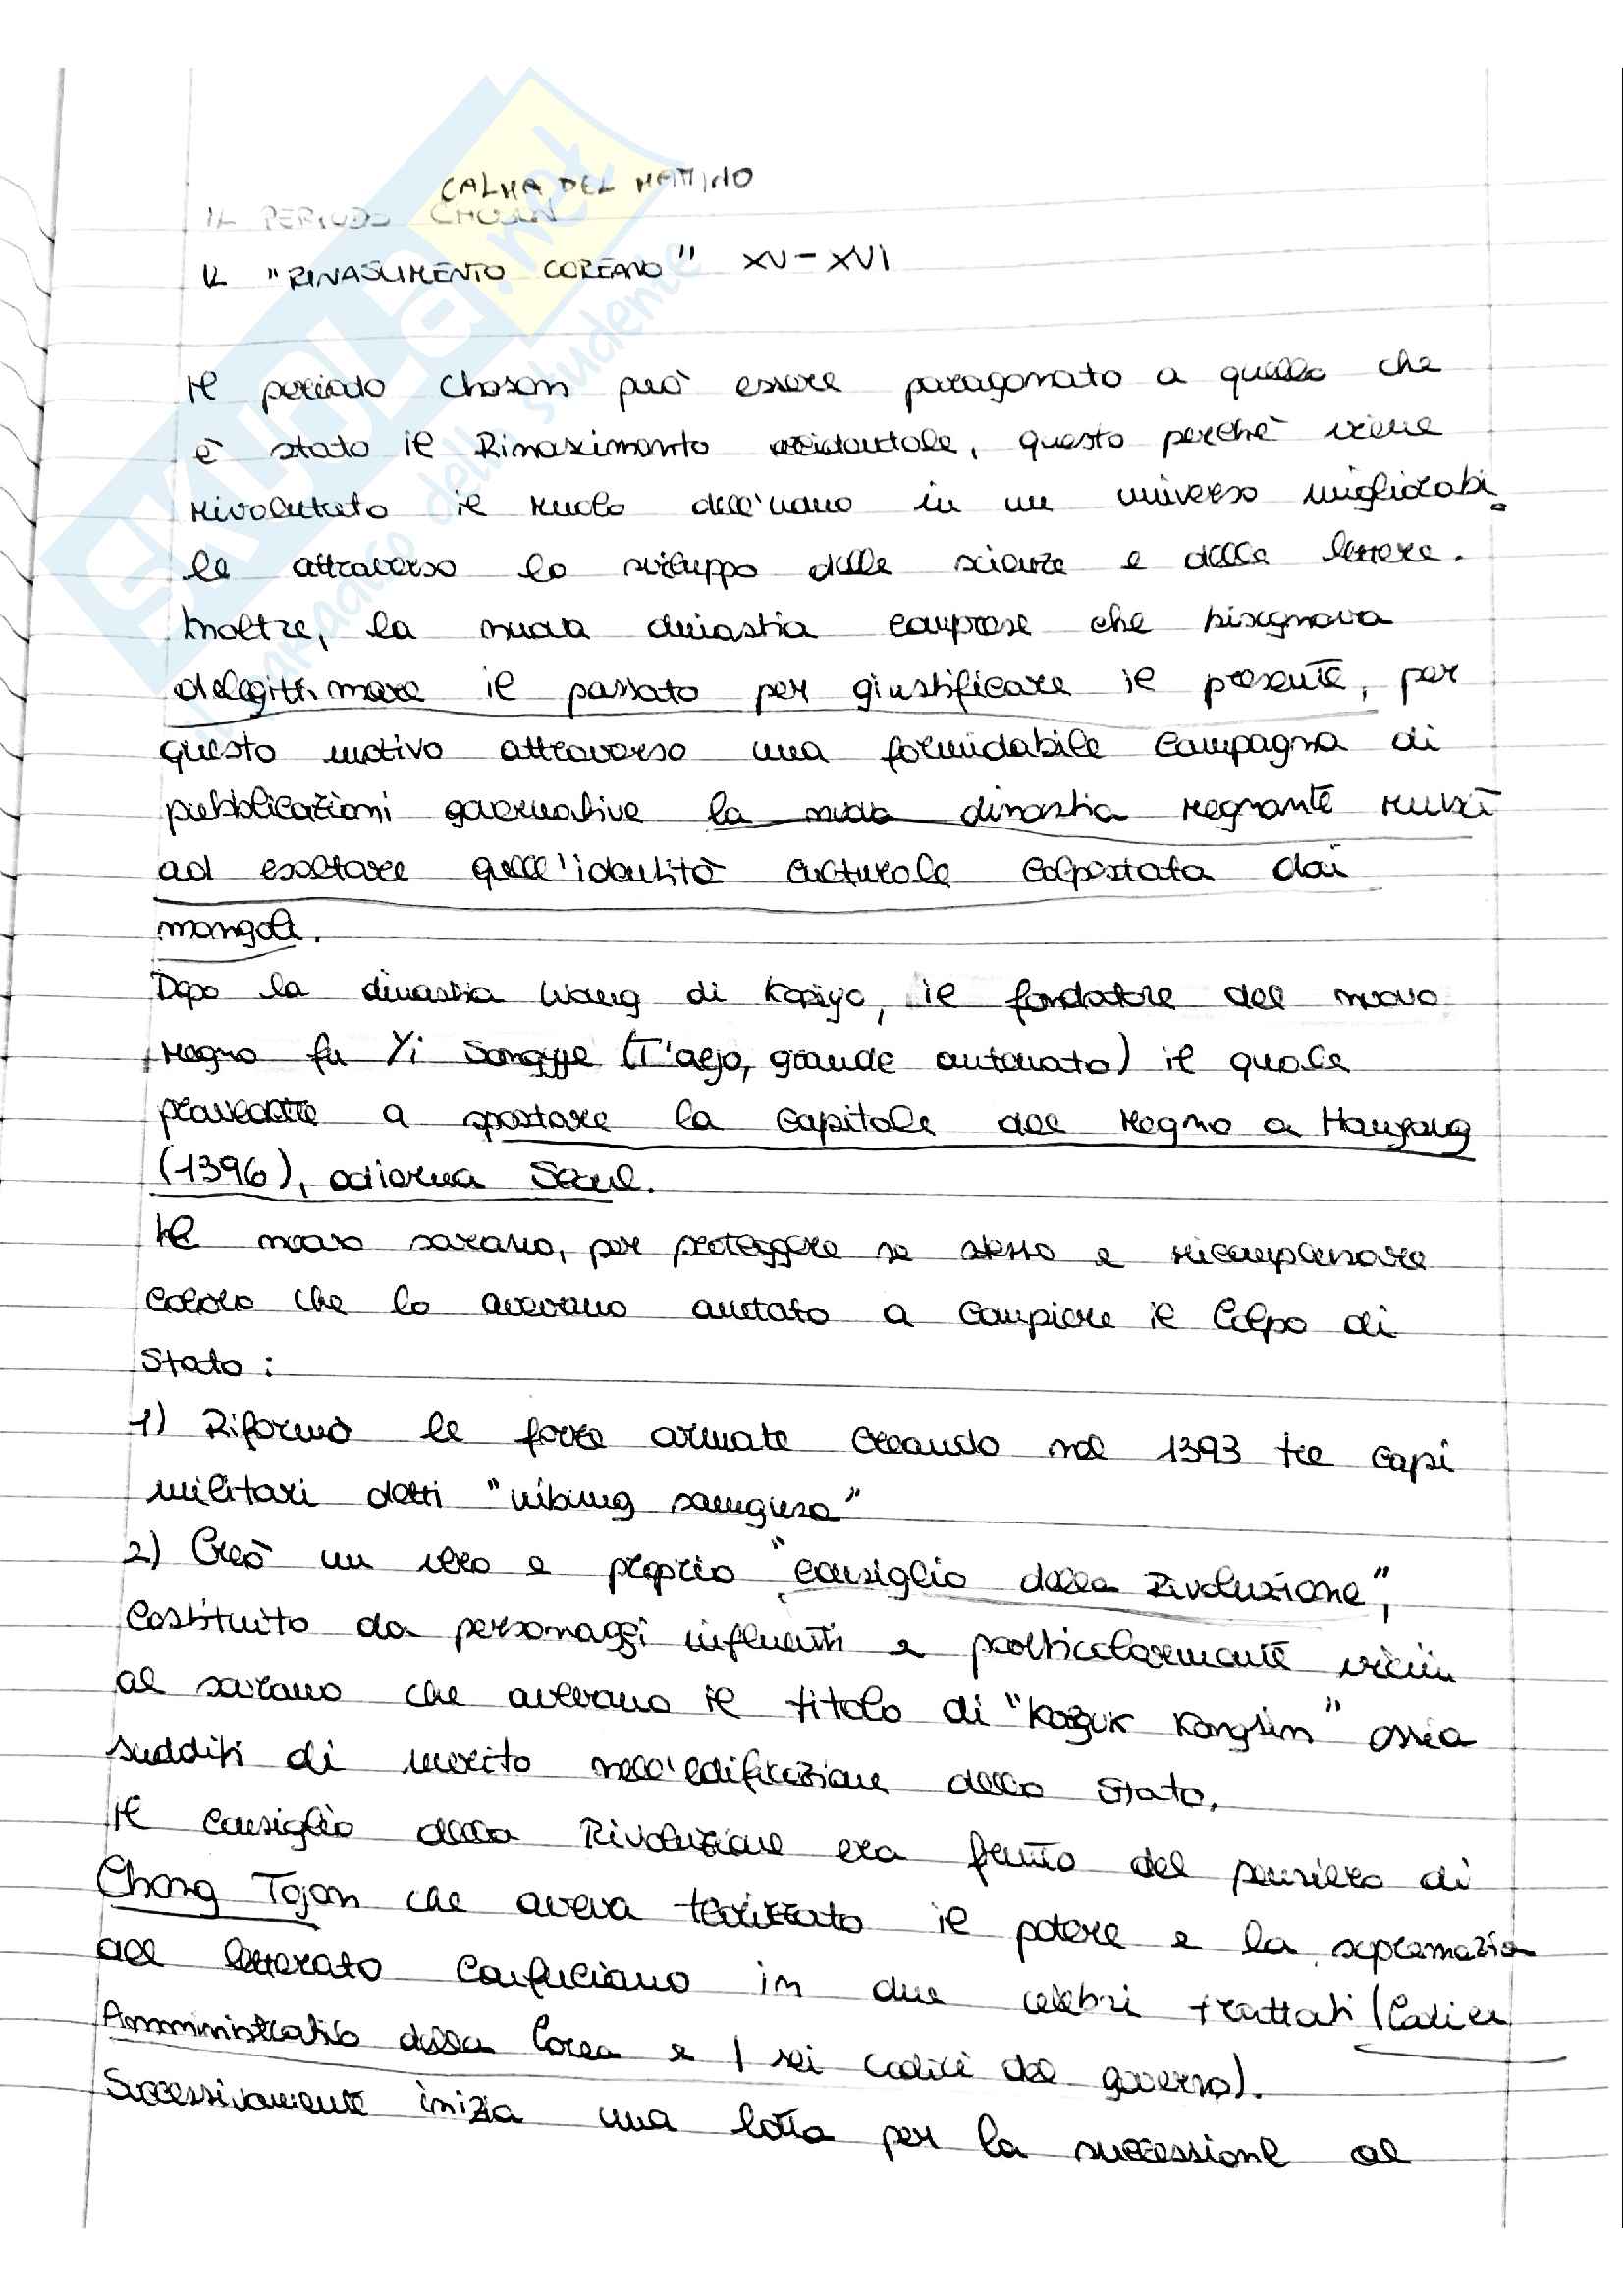 CALMA DEL MATTINO
IL PERIODO CHOSON
IL "RINASCIMENTO COREANO" XV-XVI
SKUOLA.net
Il paradiso dello studente
Il periodo Choson può essere paragonato a quello che
è stato il Rinascimento occidentale, questo perchè viene
rivalutato il ruolo dell'uomo in un universo migliorabi
le attraverso lo sviluppo delle scienze e delle lettere.
Inoltre, la nuova dinastia comprese che bisognava
delegittimare il passato per giustificare il presente, per
questo motivo attraverso una formidabile campagna di
pubblicazioni governative la nuova dinastia regnante riuscì
ad esaltare quell'identità culturale calpestata dai
mongoli.
Dopo la dinastia Wang di Koryo, il fondatore del nuovo
regno fu Yi Songgye (T'aejo, grande antenato) il quale
provvedette a spostare la capitale del regno a Hanyang
(1396), odierna Seoul.
Il nuovo sovrano, per proteggere se stesso e ricompensare
coloro che lo avevano aiutato a compiere il colpo di
Stato:
1) Riformò le forze armate creando nel 1393 tre capi
militari detti "uihung samgunsa"
2) Creò un vero e proprio "consiglio della Rivoluzione",
costituito da personaggi influenti e particolarmente vicini
al sovrano che avevano il titolo di "Kaeguk Kongsin" ossia
sudditi di merito nell'edificazione dello Stato.
Il consiglio della Rivoluzione era frutto del pensiero di
Chong Tojon che aveva teorizzato il potere e la supremazia
del letterato confuciano in due celebri trattati (Codice
Ammministrativo della Corea e I sei codici del governo).
Successivamente inizia una lotta per la successione al